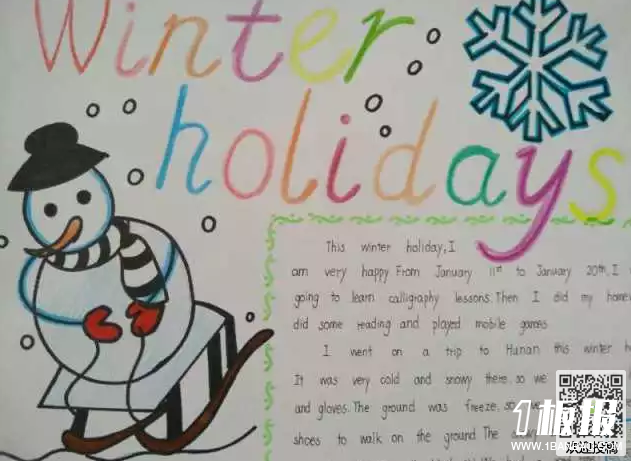 Winter
holidays
This winter holiday, I
am very happy. From January 11st to January 20th, I
going to learn calligraphy lessons. Then I did my home
did some reading and played mobile games
I went on a trip to Hunan this winter
It was very cold and snowy there, so we
and gloves. The ground was freeze, so
shoes to walk on the ground. The
1板报
WWW.1BANBAO.COM
欢迎投稿